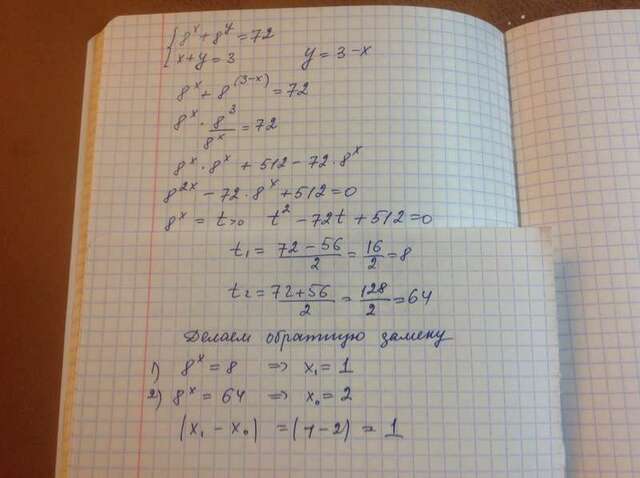 { 8^x + 8^y = 72
x + y = 3    y = 3 - x
8^x + 8^(3-x) = 72
8^x · 8^3/8^x = 72
8^x · 8^x + 512 - 72 · 8^x
8^2x - 72 · 8^x + 512 = 0
8^x = t > 0    t^2 - 72t + 512 = 0
t₁ = (72 - 56)/2 = 16/2 = 8
t₂ = (72 + 56)/2 = 128/2 = 64
Делаем обратную замену
1) 8^x = 8 => x₁ = 1
2) 8^x = 64 => x₀ = 2
|x₁ - x₀| = |1 - 2| = 1